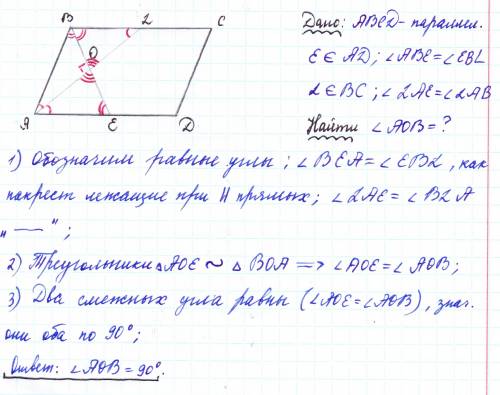 B L C
O
A E D
Дано: ABCD - параллел.
E ∈ AD; ∠ABE = ∠EBL
L ∈ BC; ∠LAE = ∠LAB
Найти ∠AOB = ?
1) Обозначим равные углы; ∠BEA = ∠EBL, как
накрест лежащие при II прямых; ∠LAE = ∠BLA
„ — " ;
2) Треугольники △AOE ~ △BOA => ∠AOE = ∠AOB;
3) Два смежных угла равны (∠AOE = ∠AOB), знач.
они оба по 90°;
Ответ: ∠AOB = 90°.